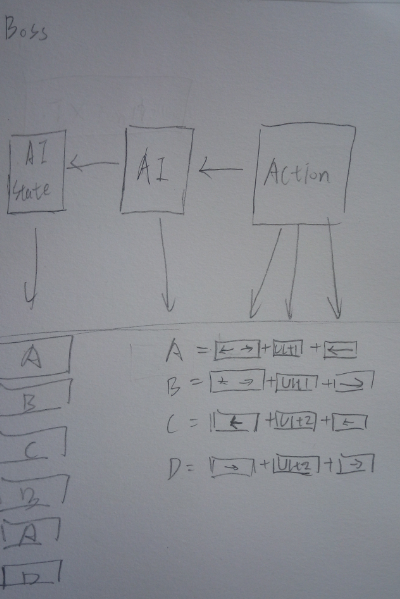 Boss
AI State ← AI ← Action
A
B
C
B
A
D
A = ← → + Ult1 + ←
B = ← → + Ult1 + →
C = ← + Ult2 + ←
D = → + Ult2 + →